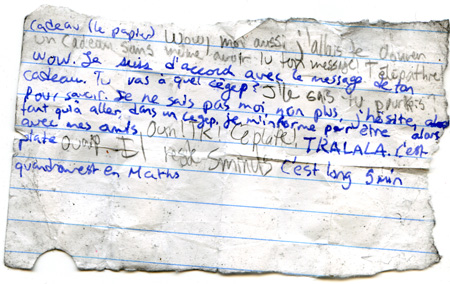 cadeau (le papier) Wow, moi aussi j'allais te donner
un cadeau sans même avoir lu ton message! Télépathie
WOW. Je suis d'accord avec le message de ton
cadeau. Tu vas à quel cégep? J'le sais tu pourquoi?
Pour savoir. Je ne sais pas moi non plus, j'hésite,
tant qu'à aller dans un cégep. Je m'informe pour être alors
avec mes amis. Oui TRALALA. C'est
plate Ouaip. Il reste 5 minuts C'est long 5 min
quand on est en Maths